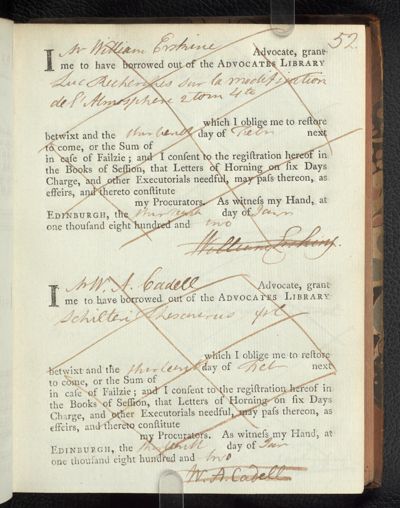 52
I Mr William Erskine Advocate, grant
me to have borrowed out of the ADVOCATES LIBRARY
Luc Recherches sur la modification
de l'Atmosphere 2 tom 4to
which I oblige me to reſtore
betwixt and the thirteenth day of Febr next
to come, or the Sum of
in caſe of Failzie; and I conſent to the regiſtration hereof in
the Books of Seſſion, that Letters of Horning on ſix Days
Charge, and other Executorials needful, may paſs thereon, as
effeirs, and thereto conſtitute
my Procurators. As witneſs my Hand, at
EDINBURGH, the thirteenth day of Janr
one thouſand eight hundred and two
William Erskine.
I Mr W. A. Cadell Advocate, grant
me to have borrowed out of the ADVOCATES LIBRARY
Schilteri Thesaurus
which I oblige me to reſtore
betwixt and the thirteenth day of Feb next
to come, or the Sum of
in caſe of Failzie; and I conſent to the regiſtration hereof in
the Books of Seſſion, that Letters of Horning on ſix Days
Charge, and other Executorials needful, may paſs thereon, as
effeirs, and thereto conſtitute
my Procurators. As witneſs my Hand, at
EDINBURGH, the thirteenth day of Janr
one thouſand eight hundred and two
W. A. Cadell